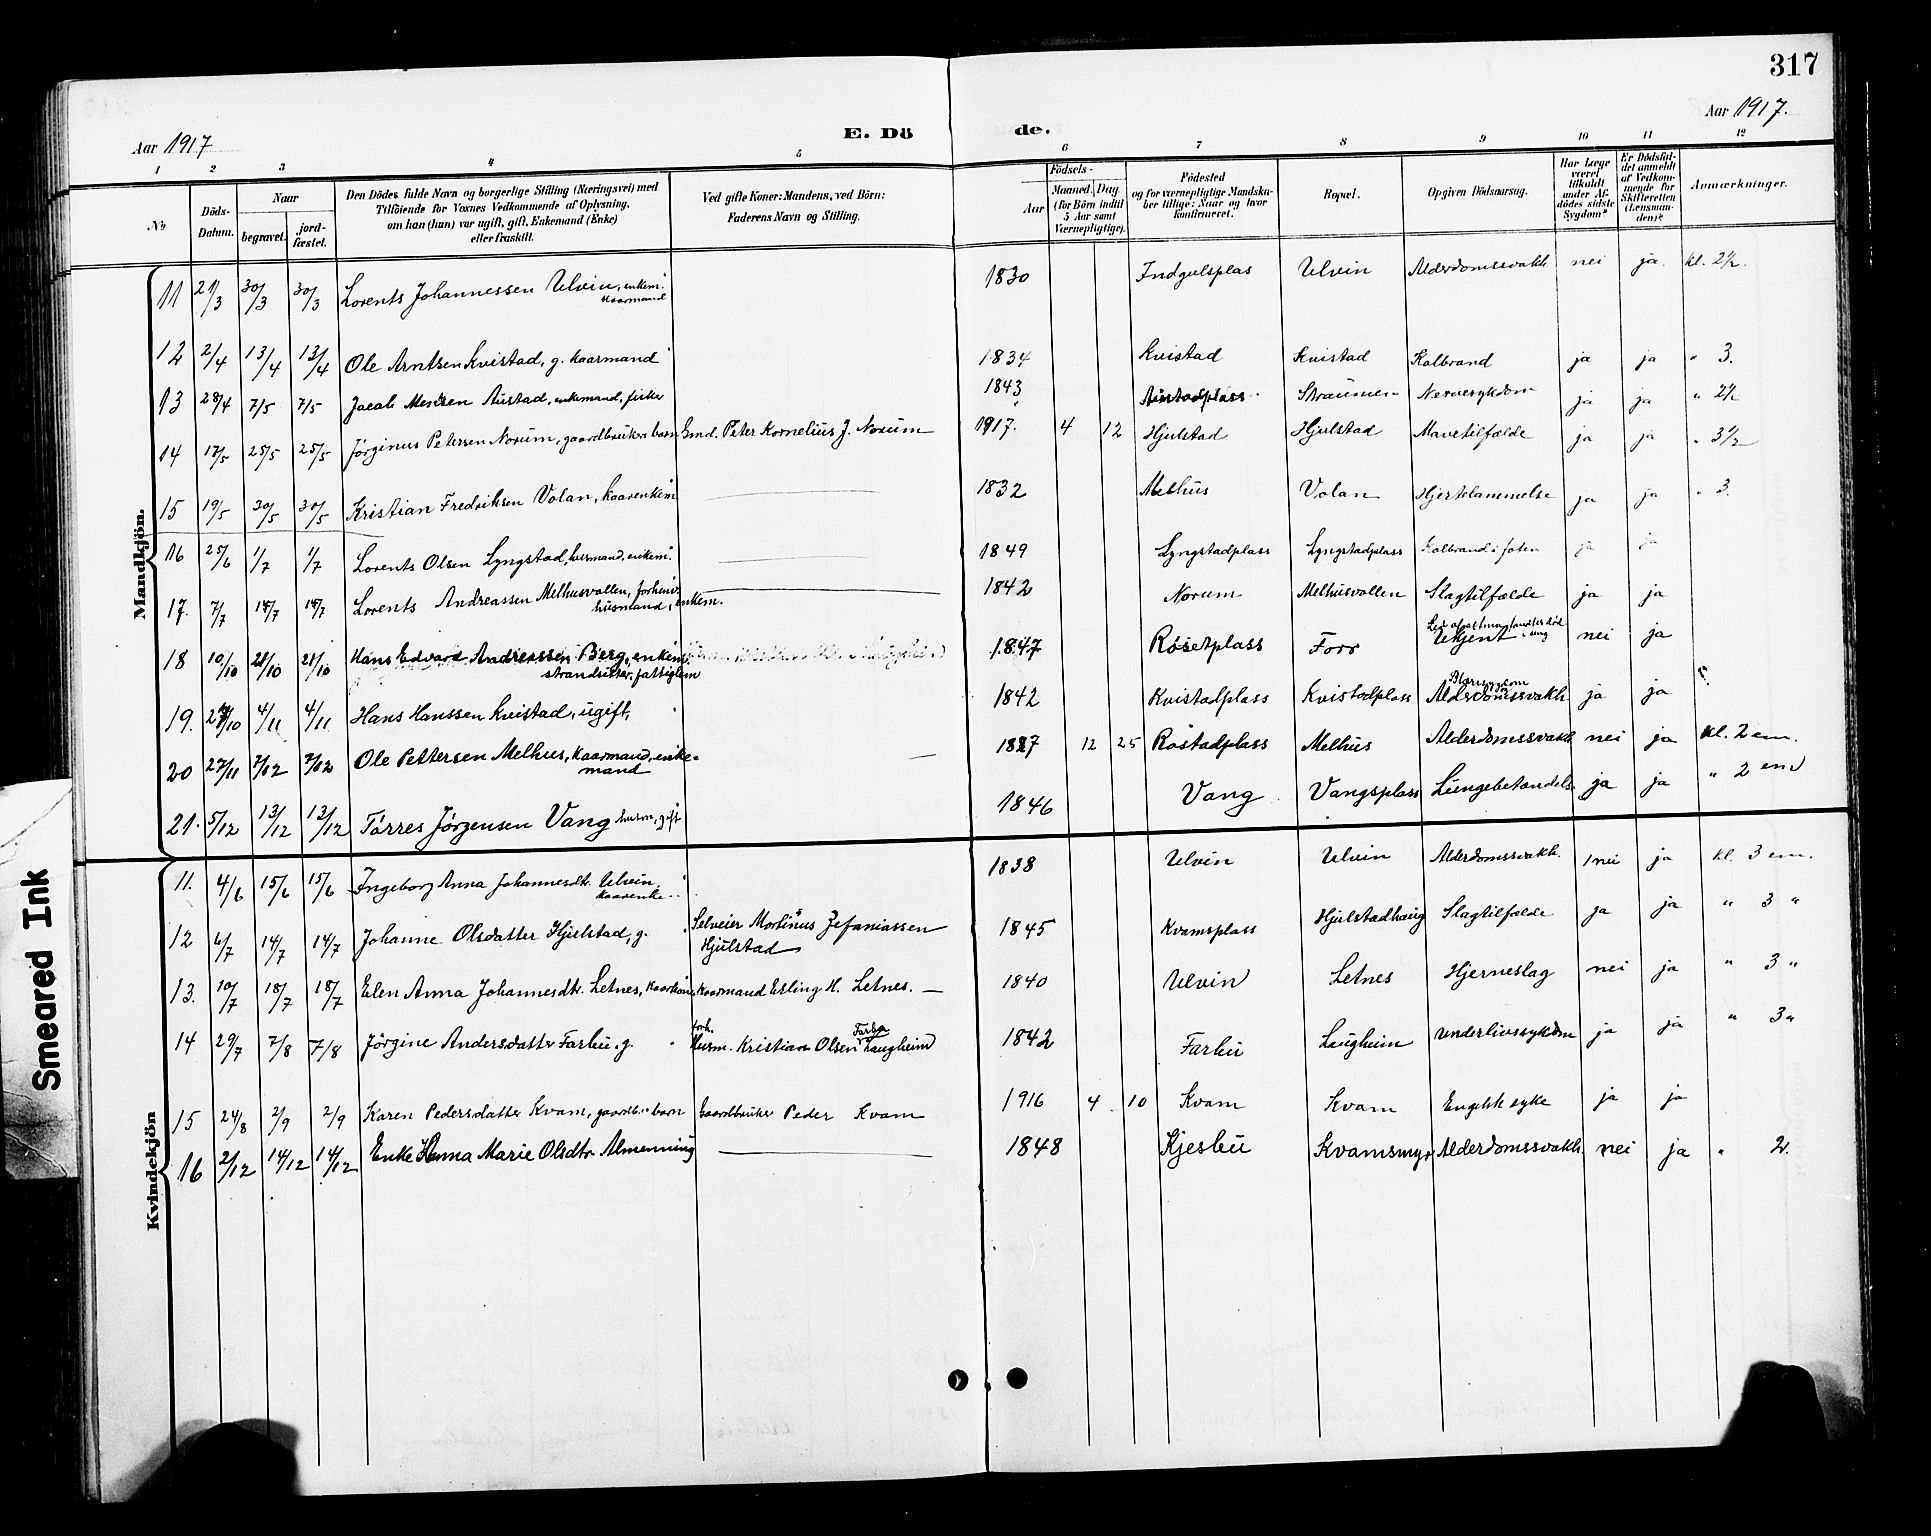 317
Aar 1917
E. Dö de.
Aar 1917.
1 2 3 4 5 6 7 8 9 10 11 12
No
Döds-Datum.
Naar
begravet. jord-fæstet.
Den Dödes fulde Navn og borgerlige Stilling (Næringsvei) med
Tilföiende for Voxnes Vedkommende af Oplysning,
om han (hun) var ugift, gift, Enkemand (Enke)
eller fraskilt.
Ved gifte Koner: Mandens, ved Börn:
Faderens Navn og Stilling.
Födsels-
Aar Maaned. Dag.
(for Börn indtil 5 Aar samt Værnepligtige).
Födested
og for værnepligtige Mandska-
ber tillige: Naar og hvor
konfirmeret.
Bopæl.
Opgiven Dödsaarsag.
Har Læge været tilkaldt under Af-dödes sidste Sygdom?
Er Dödsfal-det anmeldt af Vedkom-mende for Skifteretten (Lensman-den)?
Anmærkninger.
Mandkjön.
11 21/3 30/3 30/3 Lorents Johannessen Ulvin, enkem. kaarmand 1830 Indgulsplas Ulvin Alderdomssvakh. nei ja. kl. 2 1/2.
12 2/4 13/4 13/4 Ole Arntsen Kvistad, g. kaarmand 1834 Kvistad Kvistad Kolbrand ja ja " 3.
13 28/4 7/5 7/5 Jacob Austad, enkemand, fisker 1843 Austadplass Straumen Nervesykdom ja ja " 2 1/2
14 17/5 25/5 25/5 Jørginus Petersen Norum, gaardbrukers barn Gmd. Peter Kornelius J. Norum 1917. 4 12 Hjulstad Hjulstad Mavetilfælde ja ja " 3 1/2
15 19/5 30/5 30/5 Kristian Fredriksen Volan, kaarenkem. 1832 Melhus Volan Hjertelammelse ja ja " 3.
16 25/6 1/7 1/7 Lorents Olsen Lyngstad, husmand, enkem. 1849 Lyngstadplass Lyngstadplass Kolbrand i foten ja ja
17. 7/7 14/7 14/7 Lorents Andreassen Melhusvollen, forhenv. husmand, enkem. 1842 Norum Melhusvollen Slagtilfælde ja ja
18 10/10 21/10 21/10 Hans Edvard Andreassen Berg, enkem. strandsitter, fattiglem 1847 Røsetplass Forr Ukjent nei ja
19. 27/10 4/11 4/11 Hans Hanssen Kvistad, ugift, 1842 Kvistadplass Kvistadplass Blæresygdom Alderdomssvakh. ja ja
20 27/11 7/12 7/12 Ole Pettersen Melhus, kaarmand, enke-
mand 1827 12 25 Røstadplass Melhus Alderdomssvakh. nei ja kl. 2 em.
21. 5/12 13/12 13/12 Tørres Jørgensen Vang husm., gift 1846 Vang Vangsplass Lungebetændels. ja ja " 2 em
Kvindekjön
11. 4/6 15/6 15/6 Ingeborg Anna Johannesdtr. Ulvin, kaarenke 1838 Ulvin Ulvin Alderdomssvakh. nei ja kl. 3 em.
12 6/7 14/7 14/7 Johanne Olsdatter Hjulstad, g. Selveier Mortinus Zefaniassen
Hjulstad 1845 Kvamsplass Hjulstadhaug Slagtilfælde ja ja " 3 "
13. 10/7 18/7 18/7 Elen Anna Johannesdtr. Letnes, kaarkone Kaarmand Erling H. Letnes. 1840 Ulvin Letnes Hjerneslag nei ja " 3 "
14 29/7 7/8 7/8 Jørgine Andersdatter Farbu, g. forh. Husm. Kristian Olsen Farbu Laugheim 1842 Farbu Laugheim Underlivssykdom ja ja " 3 "
15 24/8 2/9 2/9 Karen Pedersdatter Kvam, gaardbr. barn Gaardbruker Peder Kvam 1916 4 10 Kvam Kvam Engelsk syke ja ja
16 2/12 14/12 14/12 Enke Hanna Marie Olsdtr. Almenning 1848 Kjesbu Kvamsmyr Alderdomssvakh. nei ja " 2.
Smeared Ink